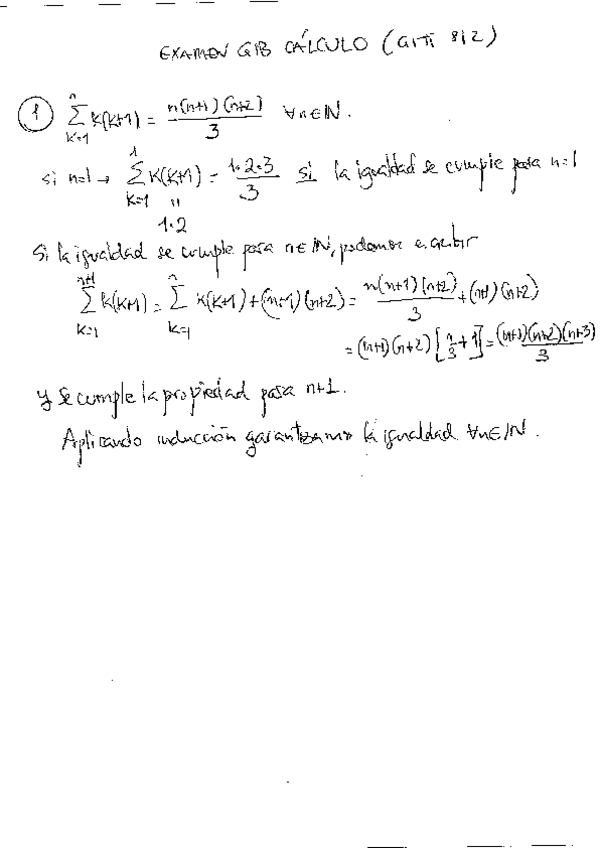 EXAMEN GIB CÁLCULO (GITI 812)
① \sum_{k=1}^{n} k(k+1) = \frac{n(n+1)(n+2)}{3} ∀n∈ℕ.
si n=1 → \sum_{k=1}^{1} k(k+1) = \frac{1·2·3}{3} si la igualdad se cumple para n=1
"
1·2
Si la igualdad se cumple para n∈ℕ, podemos escribir
\sum_{k=1}^{n+1} k(k+1) = \sum_{k=1}^{n} k(k+1) + (n+1)(n+2) = \frac{n(n+1)(n+2)}{3} + (n+1)(n+2)
= (n+1)(n+2) [\frac{n}{3} + 1] = \frac{(n+1)(n+2)(n+3)}{3}
y se cumple la propiedad para n+1.
Aplicando inducción garantizamos la igualdad ∀n∈ℕ.